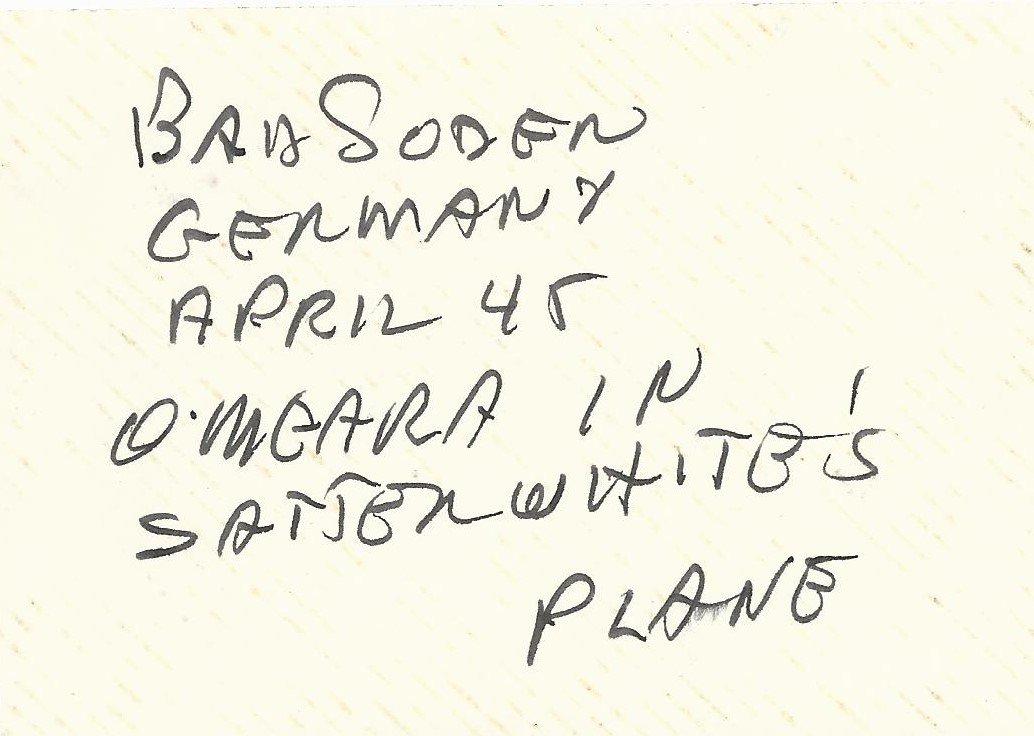 BAD SODEN
GERMANY
APRIL 45
O'MEARA IN
SATTERWHITE'S
PLANE